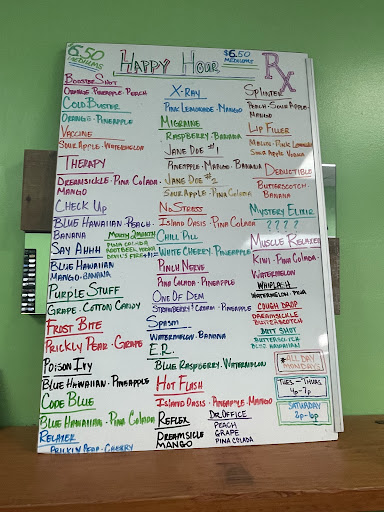 $6.50
MEDIUMS
HAPPY HOUR
$6.50
MEDIUMS
Rx
BOOSTER SHOT
ORANGE · PINEAPPLE · PEACH
COLD BUSTER
ORANGE · PINEAPPLE
VACCINE
SOUR APPLE · WATERMELON
THERAPY
DREAMSICKLE · PINA COLADA ·
MANGO
CHECK UP
BLUE HAWAIIAN · PEACH ·
BANANA
SAY AHHH
BLUE HAWAIIAN
MANGO · BANANA
PURPLE STUFF
GRAPE · COTTON CANDY
FROST BITE
PRICKLY PEAR · GRAPE
POISON IVY
BLUE HAWAIIAN · PINEAPPLE
CODE BLUE
BLUE HAWAIIAN · PINA COLADA
RELAXER
PRICKLY PEAR · CHERRY
X-RAY
PINK LEMONADE · MANGO
MIGRAINE
RASPBERRY · BANANA
JANE DOE #1
PINEAPPLE · MELON · BANANA
JANE DOE #2
SOUR APPLE · PINA COLADA
NO STRESS
ISLAND OASIS · PINA COLADA
CHILL PILL
WHITE CHERRY · PINEAPPLE
PINCH NERVE
PINA COLADA · PINEAPPLE
ONE OF DEM
STRAWBERRY & CREAM · PINEAPPLE
SPASM
WATERMELON · BANANA
E.R.
BLUE RASPBERRY · WATERMELON
HOT FLASH
ISLAND OASIS · PINEAPPLE · MANGO
REFLEX
DREAMSICLE
MANGO
DR. OFFICE
PEACH
GRAPE
PINA COLADA
SPLINTER
PEACH · SOUR APPLE ·
MANGO
LIP FILLER
SOUR APPLE
DEDUCTIBLE
BUTTERSCOTCH ·
BANANA
MYSTERY ELIXIR
? ? ? ?
MUSCLE RELAXER
KIWI · PINA COLADA ·
WATERMELON
WHIPLASH
WATERMELON · PINA
COUGH DROP
DREAMSICLE
BUTTERSCOTCH
BUTT SHOT
BUTTERSCOTCH
BLUE HAWAIIAN
*ALL DAY
MONDAYS!
TUES - THURS
4p - 7p
SATURDAY